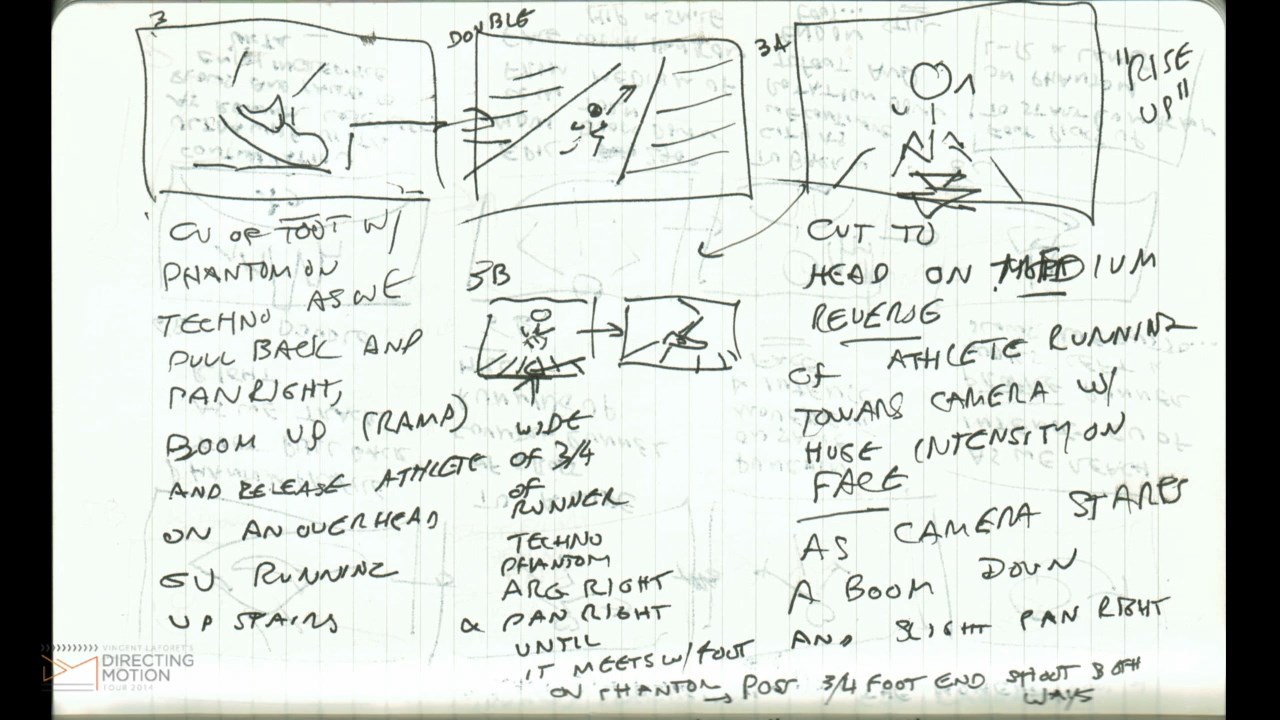 3
DOUBLE
3A
"RISE
UP"
CU OF FOOT W/
PHANTOM ON
AS WE
TECHNO
PULL BACK AND
PAN RIGHT,
BOOM UP (RAMP)
AND RELEASE ATHLETE
ON AN OVERHEAD
RUNNING
UP STAIRS
3B
WIDE
OF 3/4
OF
RUNNER
TECHNO
PHANTOM
ARC RIGHT
& PAN RIGHT
UNTIL
IT MEETS W/ FOOT
ON PHANTOM → POST 3/4 FOOT END SHOOT BOTH
WAYS
CUT TO
HEAD ON MEDIUM
REVERSE
OF ATHLETE RUNNING
TOWARDS CAMERA W/
HUGE INTENSITY ON
FACE
AS CAMERA STARTS
A BOOM DOWN
AND SLIGHT PAN RIGHT
VINCENT LAFORET'S
DIRECTING
MOTION
TOUR 2014